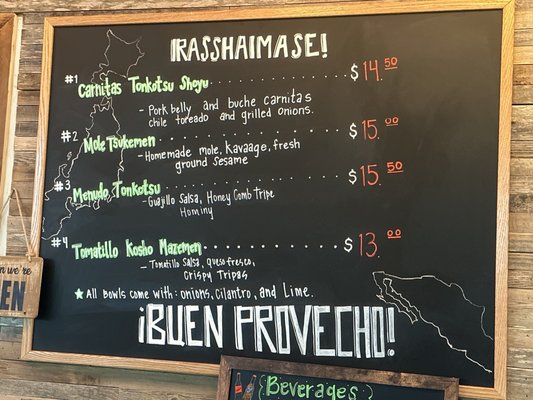 IRASSHAIMASE!
#1 Carnitas Tonkotsu Shoyu $14.50
- Pork belly and buche carnitas
chile toreado and grilled onions.
#2 Mole Tsukemen $15.00
- Homemade mole, Kavaage, fresh
ground sesame
#3 Menudo Tonkotsu $15.50
- Guajillo Salsa, Honey Comb Tripe
Hominy
#4 Tomatillo Kosho Mazemen $13.00
- Tomatillo Salsa, queso fresco,
Crispy Tripas
★ All Bowls come with: onions, Cilantro, and Lime.
¡BUEN PROVECHO!
Beverages